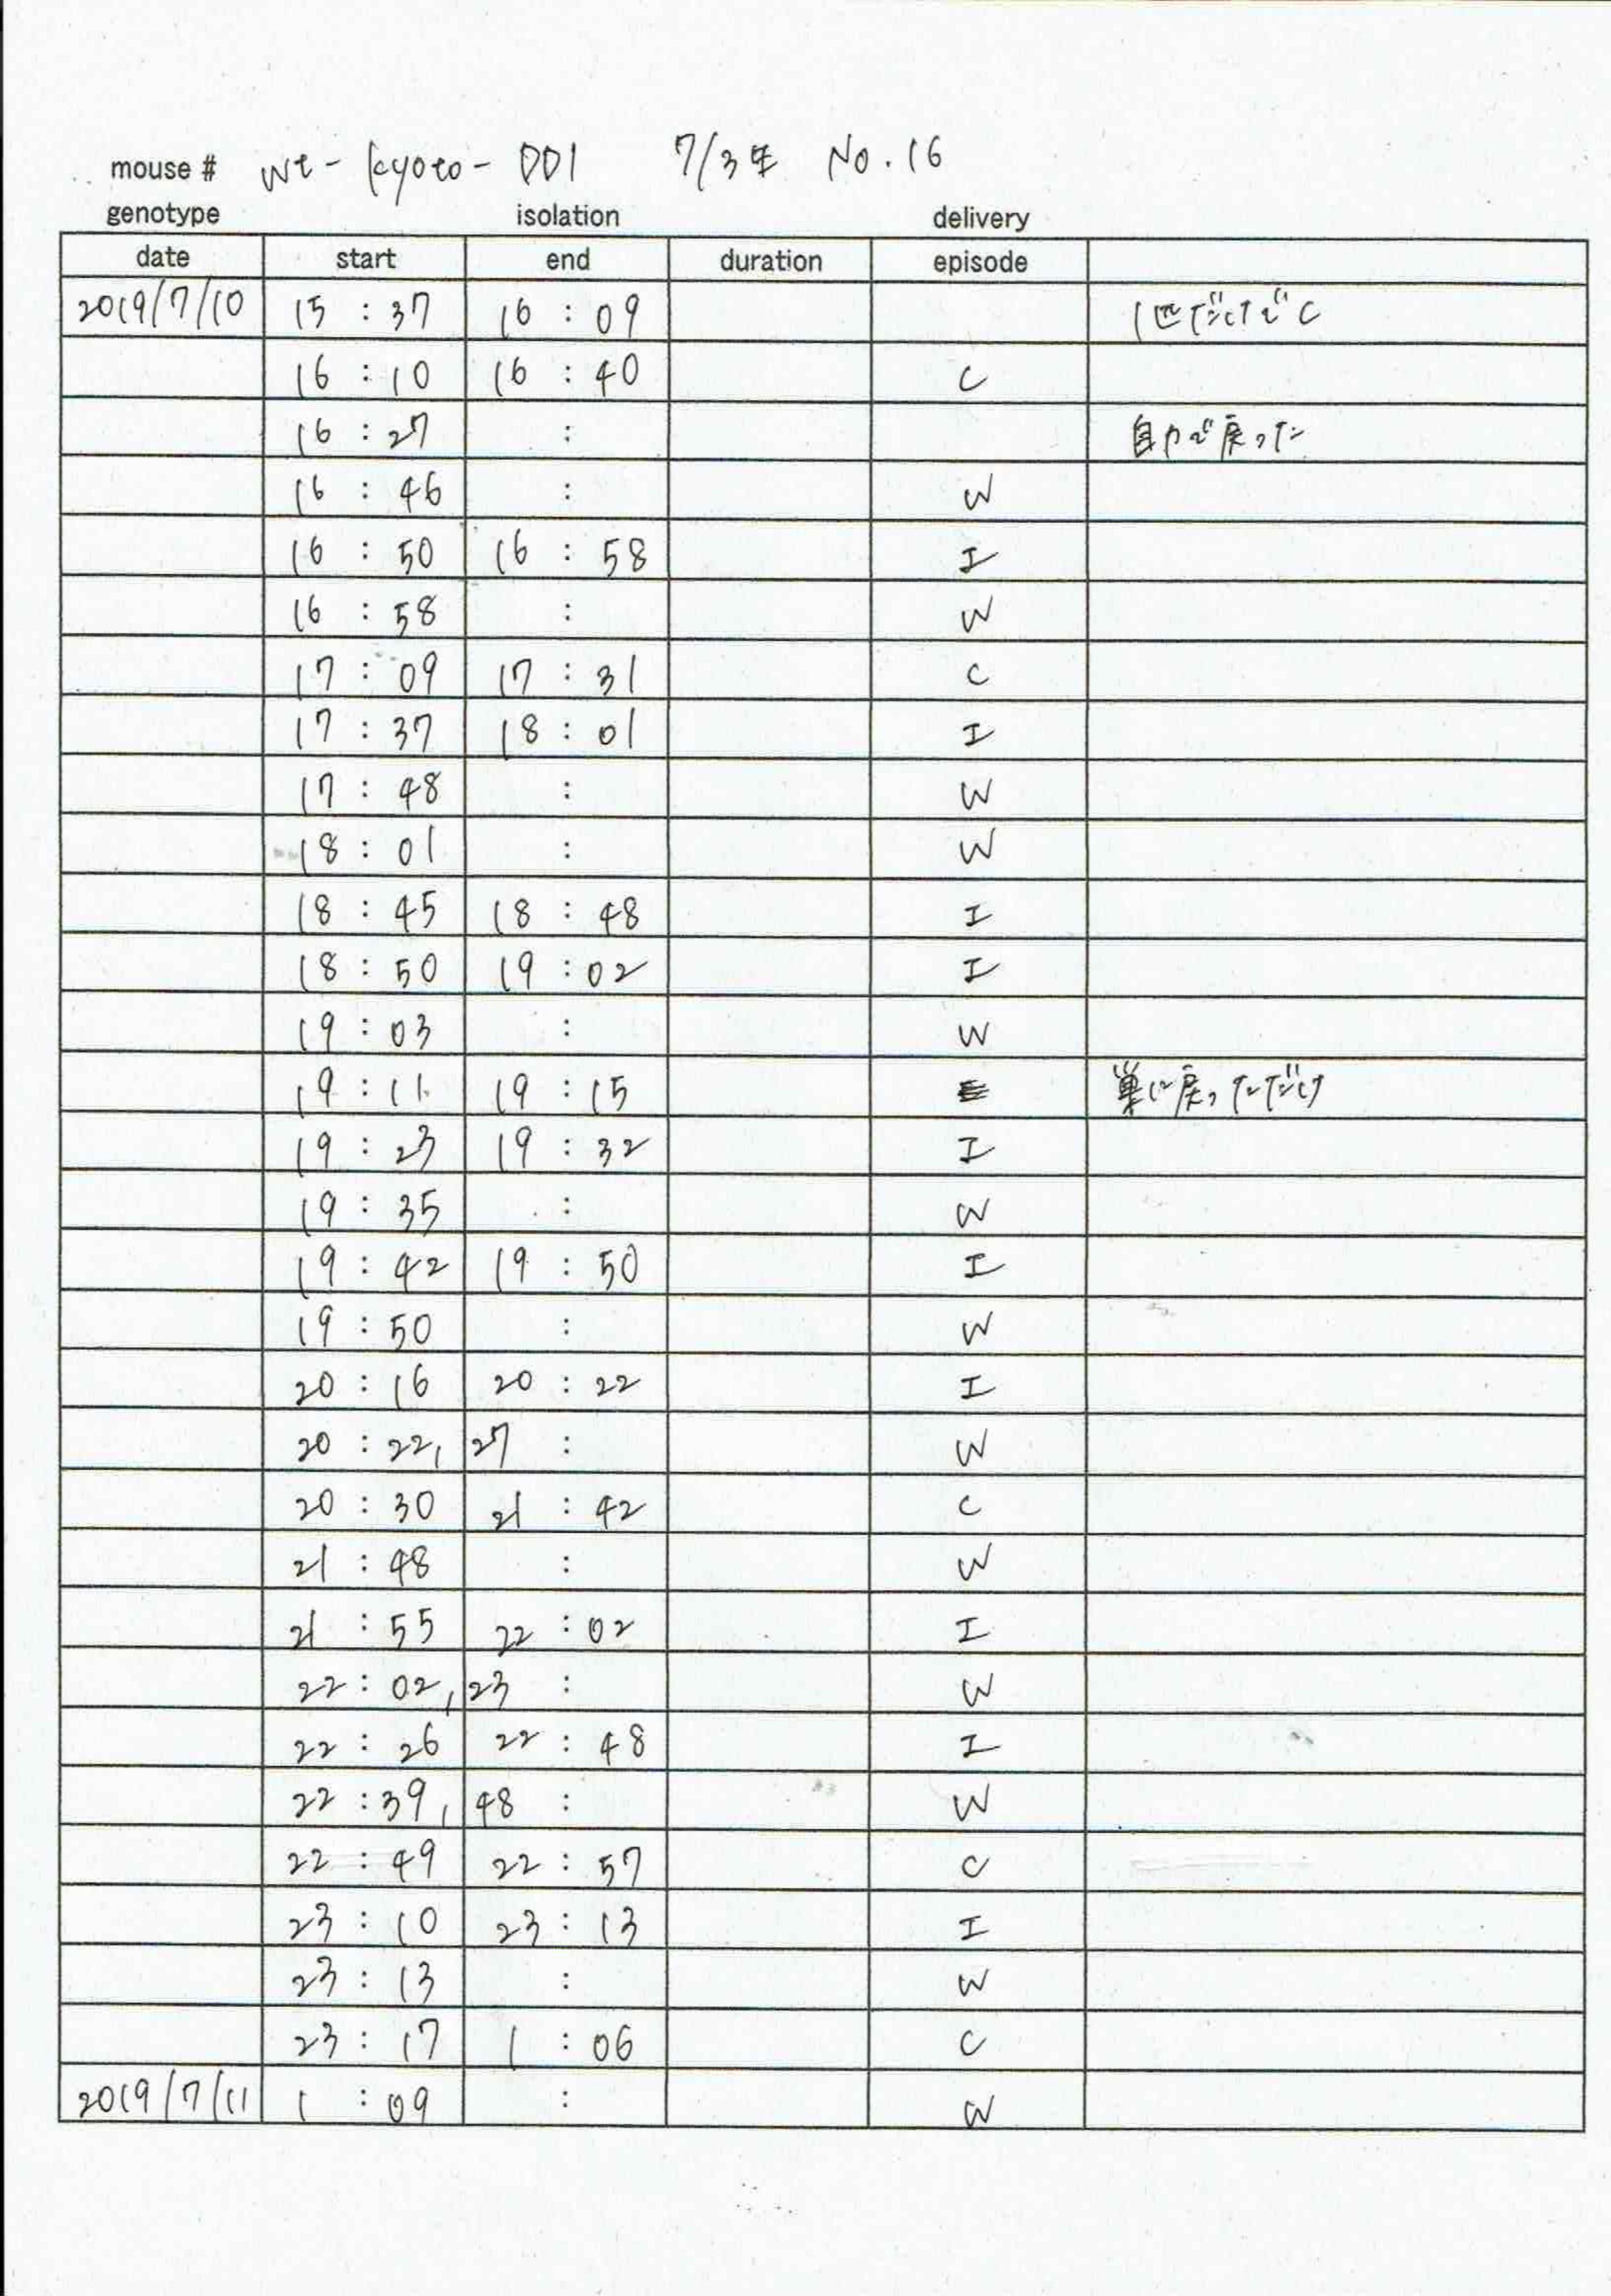 mouse # wt - kyoto - DD1 7/3生 No.16
genotype isolation delivery
date start end duration episode
2019/7/10 15 : 37 16 : 09 1匹だけでC
16 : 10 16 : 40 C
16 : 27 : 自力で戻った
16 : 46 : W
16 : 50 16 : 58 I
16 : 58 : W
17 : 09 17 : 31 C
17 : 37 18 : 01 I
17 : 48 : W
18 : 01 : W
18 : 45 18 : 48 I
18 : 50 19 : 02 I
19 : 03 : W
19 : 11 19 : 15 巣に戻っただけ
19 : 23 19 : 32 I
19 : 35 : W
19 : 42 19 : 50 I
19 : 50 : W
20 : 16 20 : 22 I
20 : 22, 27 : W
20 : 30 21 : 42 C
21 : 48 : W
21 : 55 22 : 02 I
22 : 02, 23 : W
22 : 26 22 : 48 I
22 : 39, 48 : W
22 : 49 22 : 57 C
23 : 10 23 : 13 I
23 : 13 : W
23 : 17 1 : 06 C
2019/7/11 1 : 09 : W